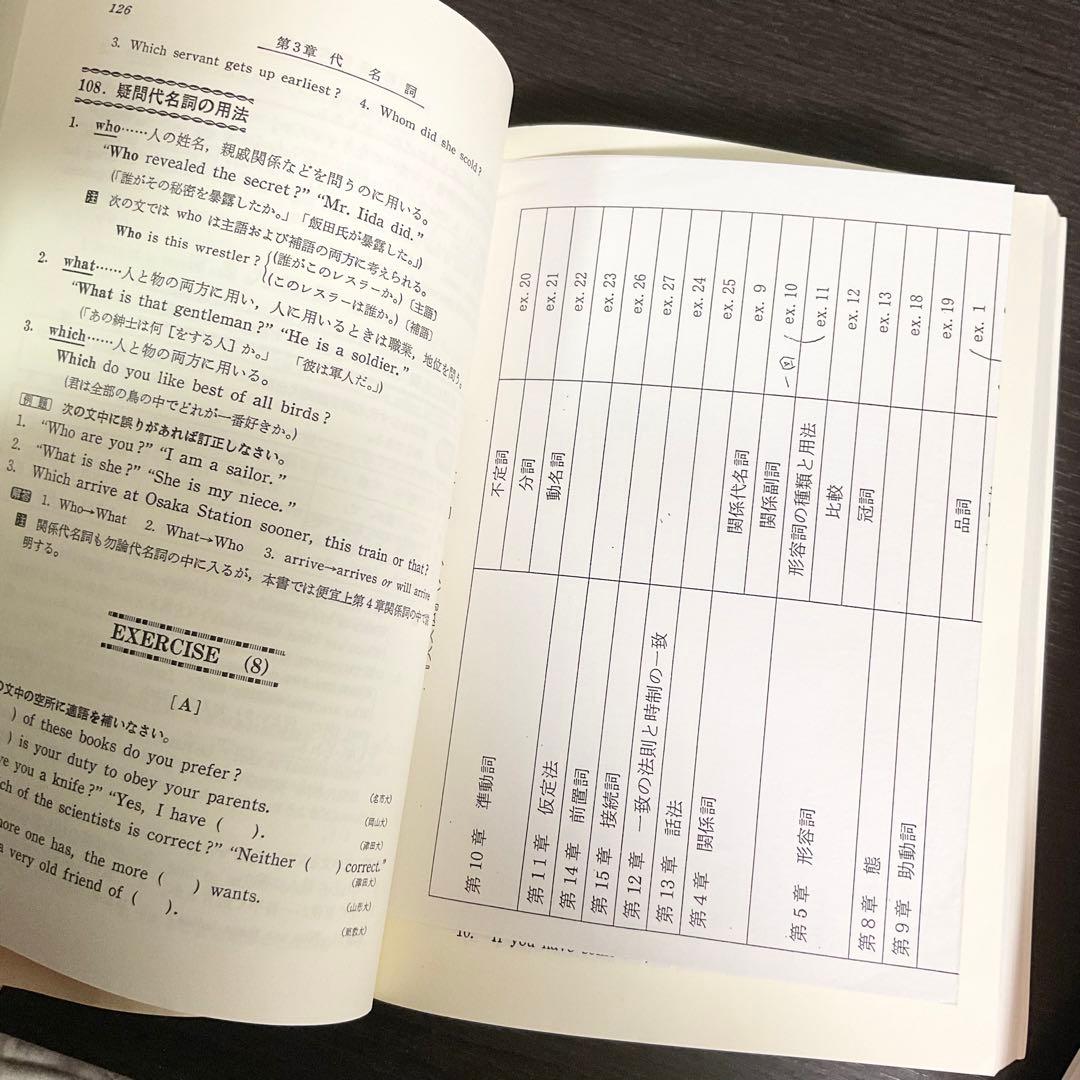 126
第3章 代 名 詞
3. Which servant gets up earliest? 4. Whom did she scold?
108. 疑問代名詞の用法
1. who……人の姓名，親戚関係などを問うのに用いる。
“Who revealed the secret?” “Mr. Iida did.”
(「誰がその秘密を暴露したか。」「飯田氏が暴露した。」)
注 次の文では who は主語および補語の両方に考えられる。
Who is this wrestler? {(誰がこのレスラーか。)〔主語〕
{(このレスラーは誰か。)〔補語〕
2. what……人と物の両方に用い，人に用いるときは職業，地位を問う。
“What is that gentleman?” “He is a soldier.”
(「あの紳士は何［をする人］か。」 「彼は軍人だ。」)
3. which……人と物の両方に用いる。
Which do you like best of all birds?
(君は全部の鳥の中でどれが一番好きか。)
例題 次の文中に誤りがあれば訂正しなさい。
1. “Who are you?” “I am a sailor.”
2. “What is she?” “She is my niece.”
3. Which arrive at Osaka Station sooner, this train or that?
解答 1. Who→What 2. What→Who 3. arrive→arrives or will arrive
注 関係代名詞も勿論代名詞の中に入るが，本書では便宜上第4章関係詞の中で説
明する。
EXERCISE (8)
[A]
の文中の空所に適語を補いなさい。
) of these books do you prefer? (名市大)
) is your duty to obey your parents. (岡山大)
ve you a knife?” “Yes, I have ( ). (津田大)
ch of the scientists is correct?” “Neither ( ) correct.” (津田大)
more one has, the more ( ) wants. (山形大)
a very old friend of ( ).
第10章 準動詞 不定詞 ex. 20
分詞 ex. 21
動名詞 ex. 22
第11章 仮定法 ex. 23
第14章 前置詞 ex. 26
第15章 接続詞 ex. 27
第12章 一致の法則と時制の一致 ex. 24
第13章 話法 ex. 25
第4章 関係詞 関係代名詞 ex. 9
関係副詞 ex. 10
第5章 形容詞 形容詞の種類と用法 ex. 11
比較 ex. 12
冠詞 ex. 13
第8章 態 ex. 18
第9章 助動詞 ex. 19
品詞 ex. 1
一回
10. If you have